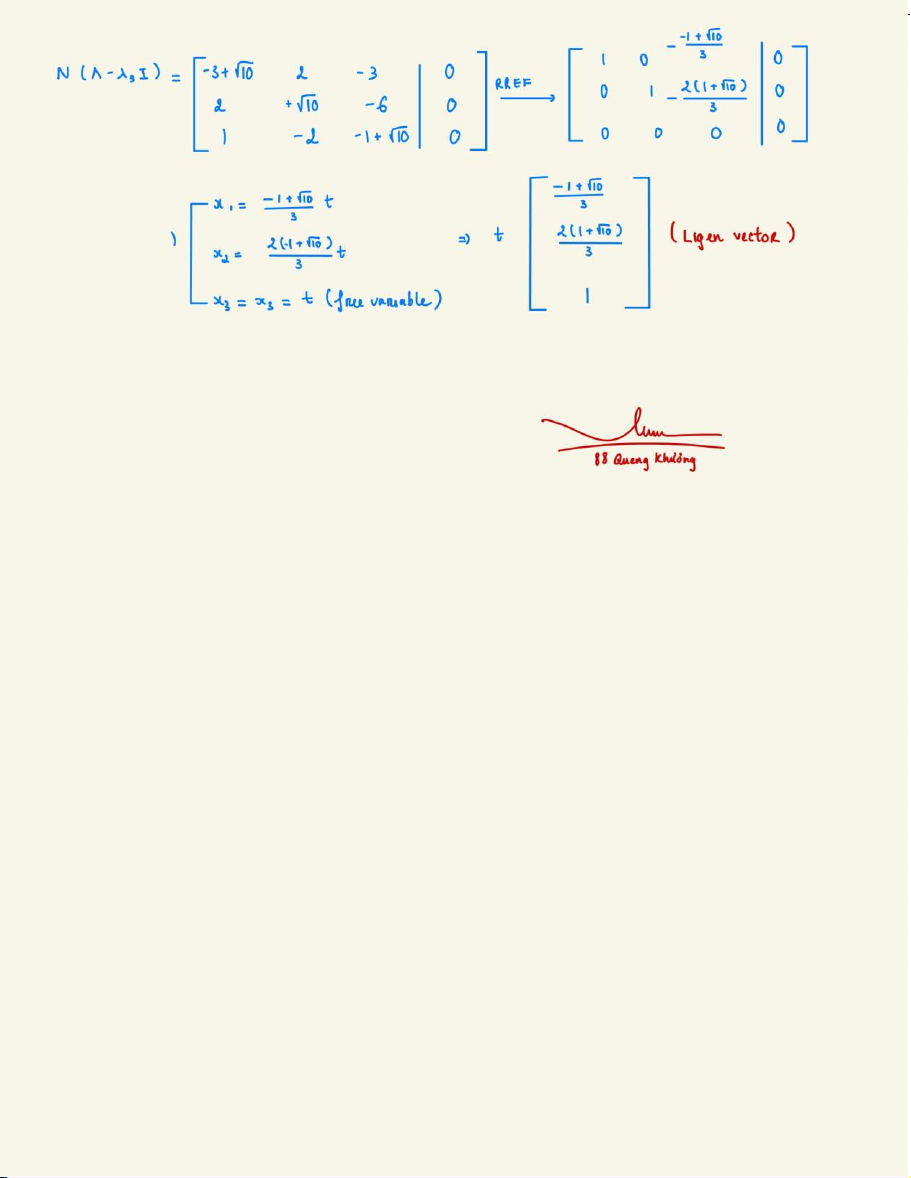 N (A - λ₃ I) = [ -3+√10 2 -3 | 0 ; 2 +√10 -6 | 0 ; 1 -2 -1+√10 | 0 ] RREF → [ 1 0 - (-1+√10)/3 | 0 ; 0 1 - 2(1+√10)/3 | 0 ; 0 0 0 | 0 ]
) x₁ = (-1+√10)/3 t
x₂ = 2(-1+√10)/3 t
x₃ = x₃ = t (free variable)
⇒ t [ (-1+√10)/3 ; 2(1+√10)/3 ; 1 ] (Eigen vector)
88 Quang Khương